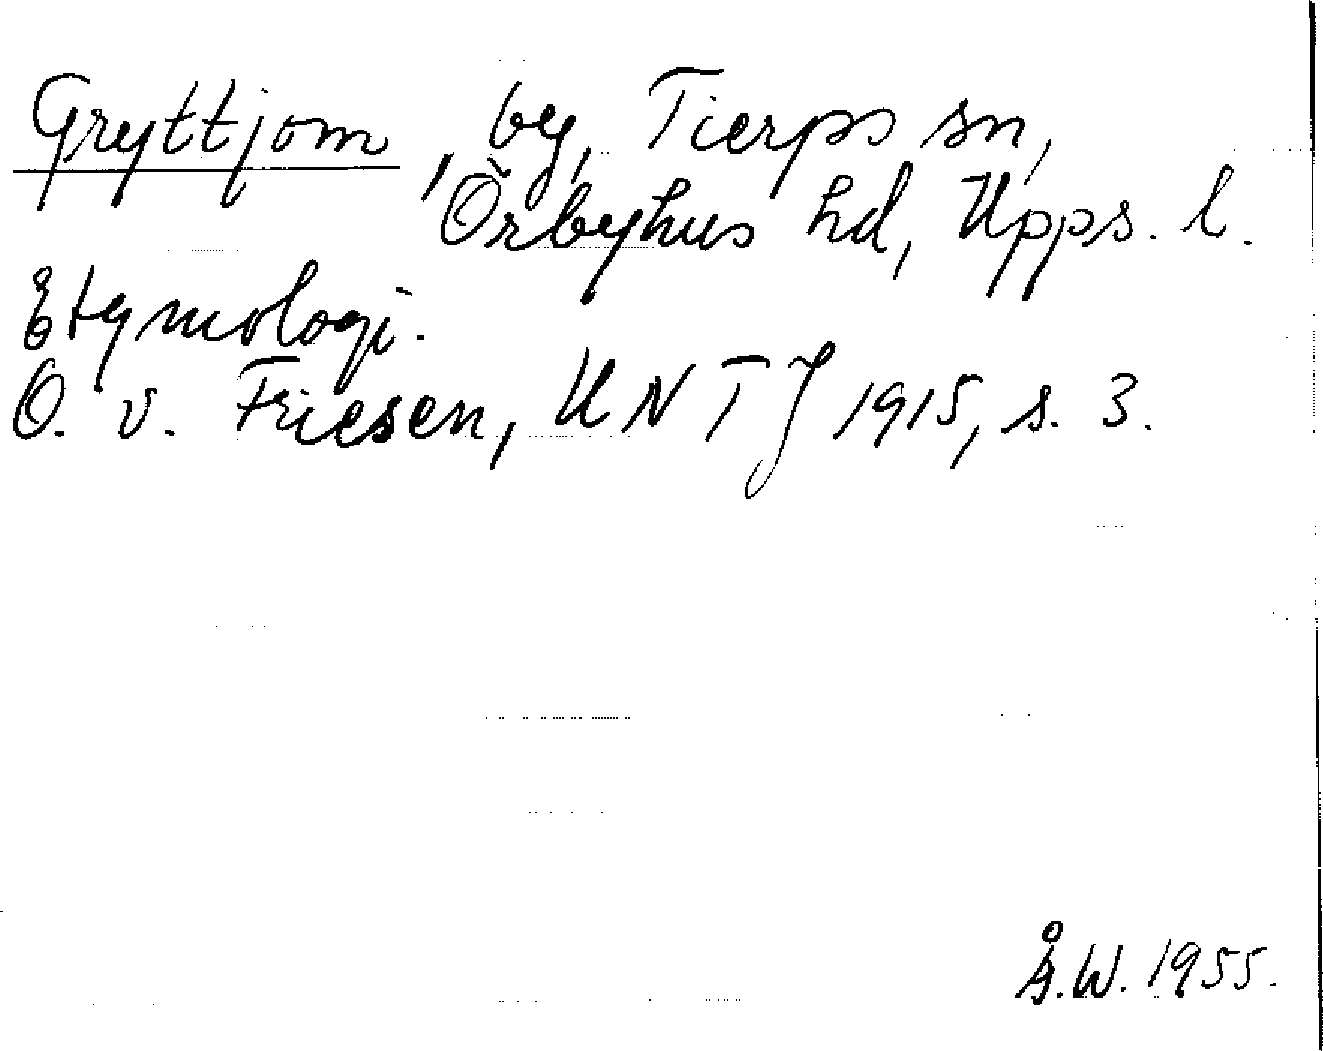 Gryttjom, by, Tierps sn,
Örbyhus hd, Upps. l.
Etymologi.
O. v. Friesen, UNTJ 1915, s. 3.
Å.W. 1955.